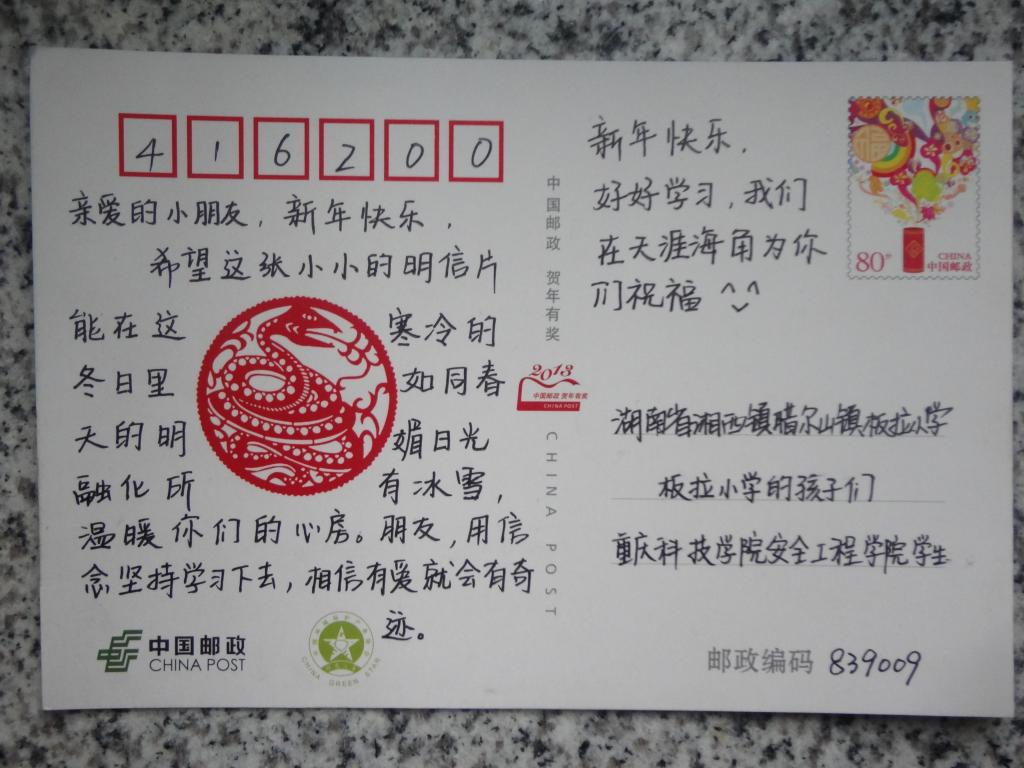 416200
亲爱的小朋友，新年快乐，
希望这张小小的明信片
能在这 寒冷的
冬日里 如同春
天的明 媚日光
融化所 有冰雪，
温暖你们的心房。朋友，用信
念坚持学习下去，相信有爱就会有奇
迹。
中国邮政
CHINA POST
CHINA GREEN STAR
中国邮政 贺年有奖
2013
中国邮政 贺年有奖
CHINA POST
CHINA POST
新年快乐，
好好学习，我们
在天涯海角为你
们祝福 ^‿^
福
80分
CHINA
中国邮政
湖南省湘西镇腊尔山镇板拉小学
板拉小学的孩子们
重庆科技学院安全工程学院学生
邮政编码 839009